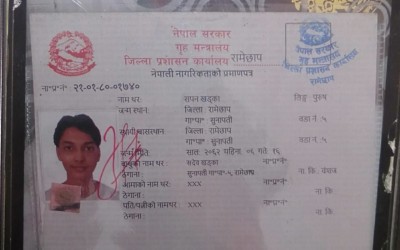 नेपाल सरकार
गृह मन्त्रालय
जिल्ला प्रशासन कार्यालय रामेछाप
नेपाली नागरिकताको प्रमाणपत्र
ना॰प्र॰नं॰ २१-०१-८०-०१७४०
नाम थर: खड्का लिङ्ग: पुरुष
जन्म स्थान: जिल्ला: रामेछाप
गा॰पा॰ सुनापती वडा नं ५
स्थायी बासस्थान: जिल्ला: रामेछाप
गा॰पा॰ सुनापती वडा नं ५
जन्म मिति: साल: २०६२ महिना: ०६ गते १६
बाबुको नाम थर: खड्का ना॰प्र॰नं॰
ठेगाना: सुनापती गा॰पा॰-५, रामेछाप ना कि: वंशज
आमाको नाम थर: xxx ना॰प्र॰नं॰
ठेगाना: ना कि
पति/पत्नीको नाम थर: xxx ना॰प्र॰नं॰
ठेगाना: ना कि